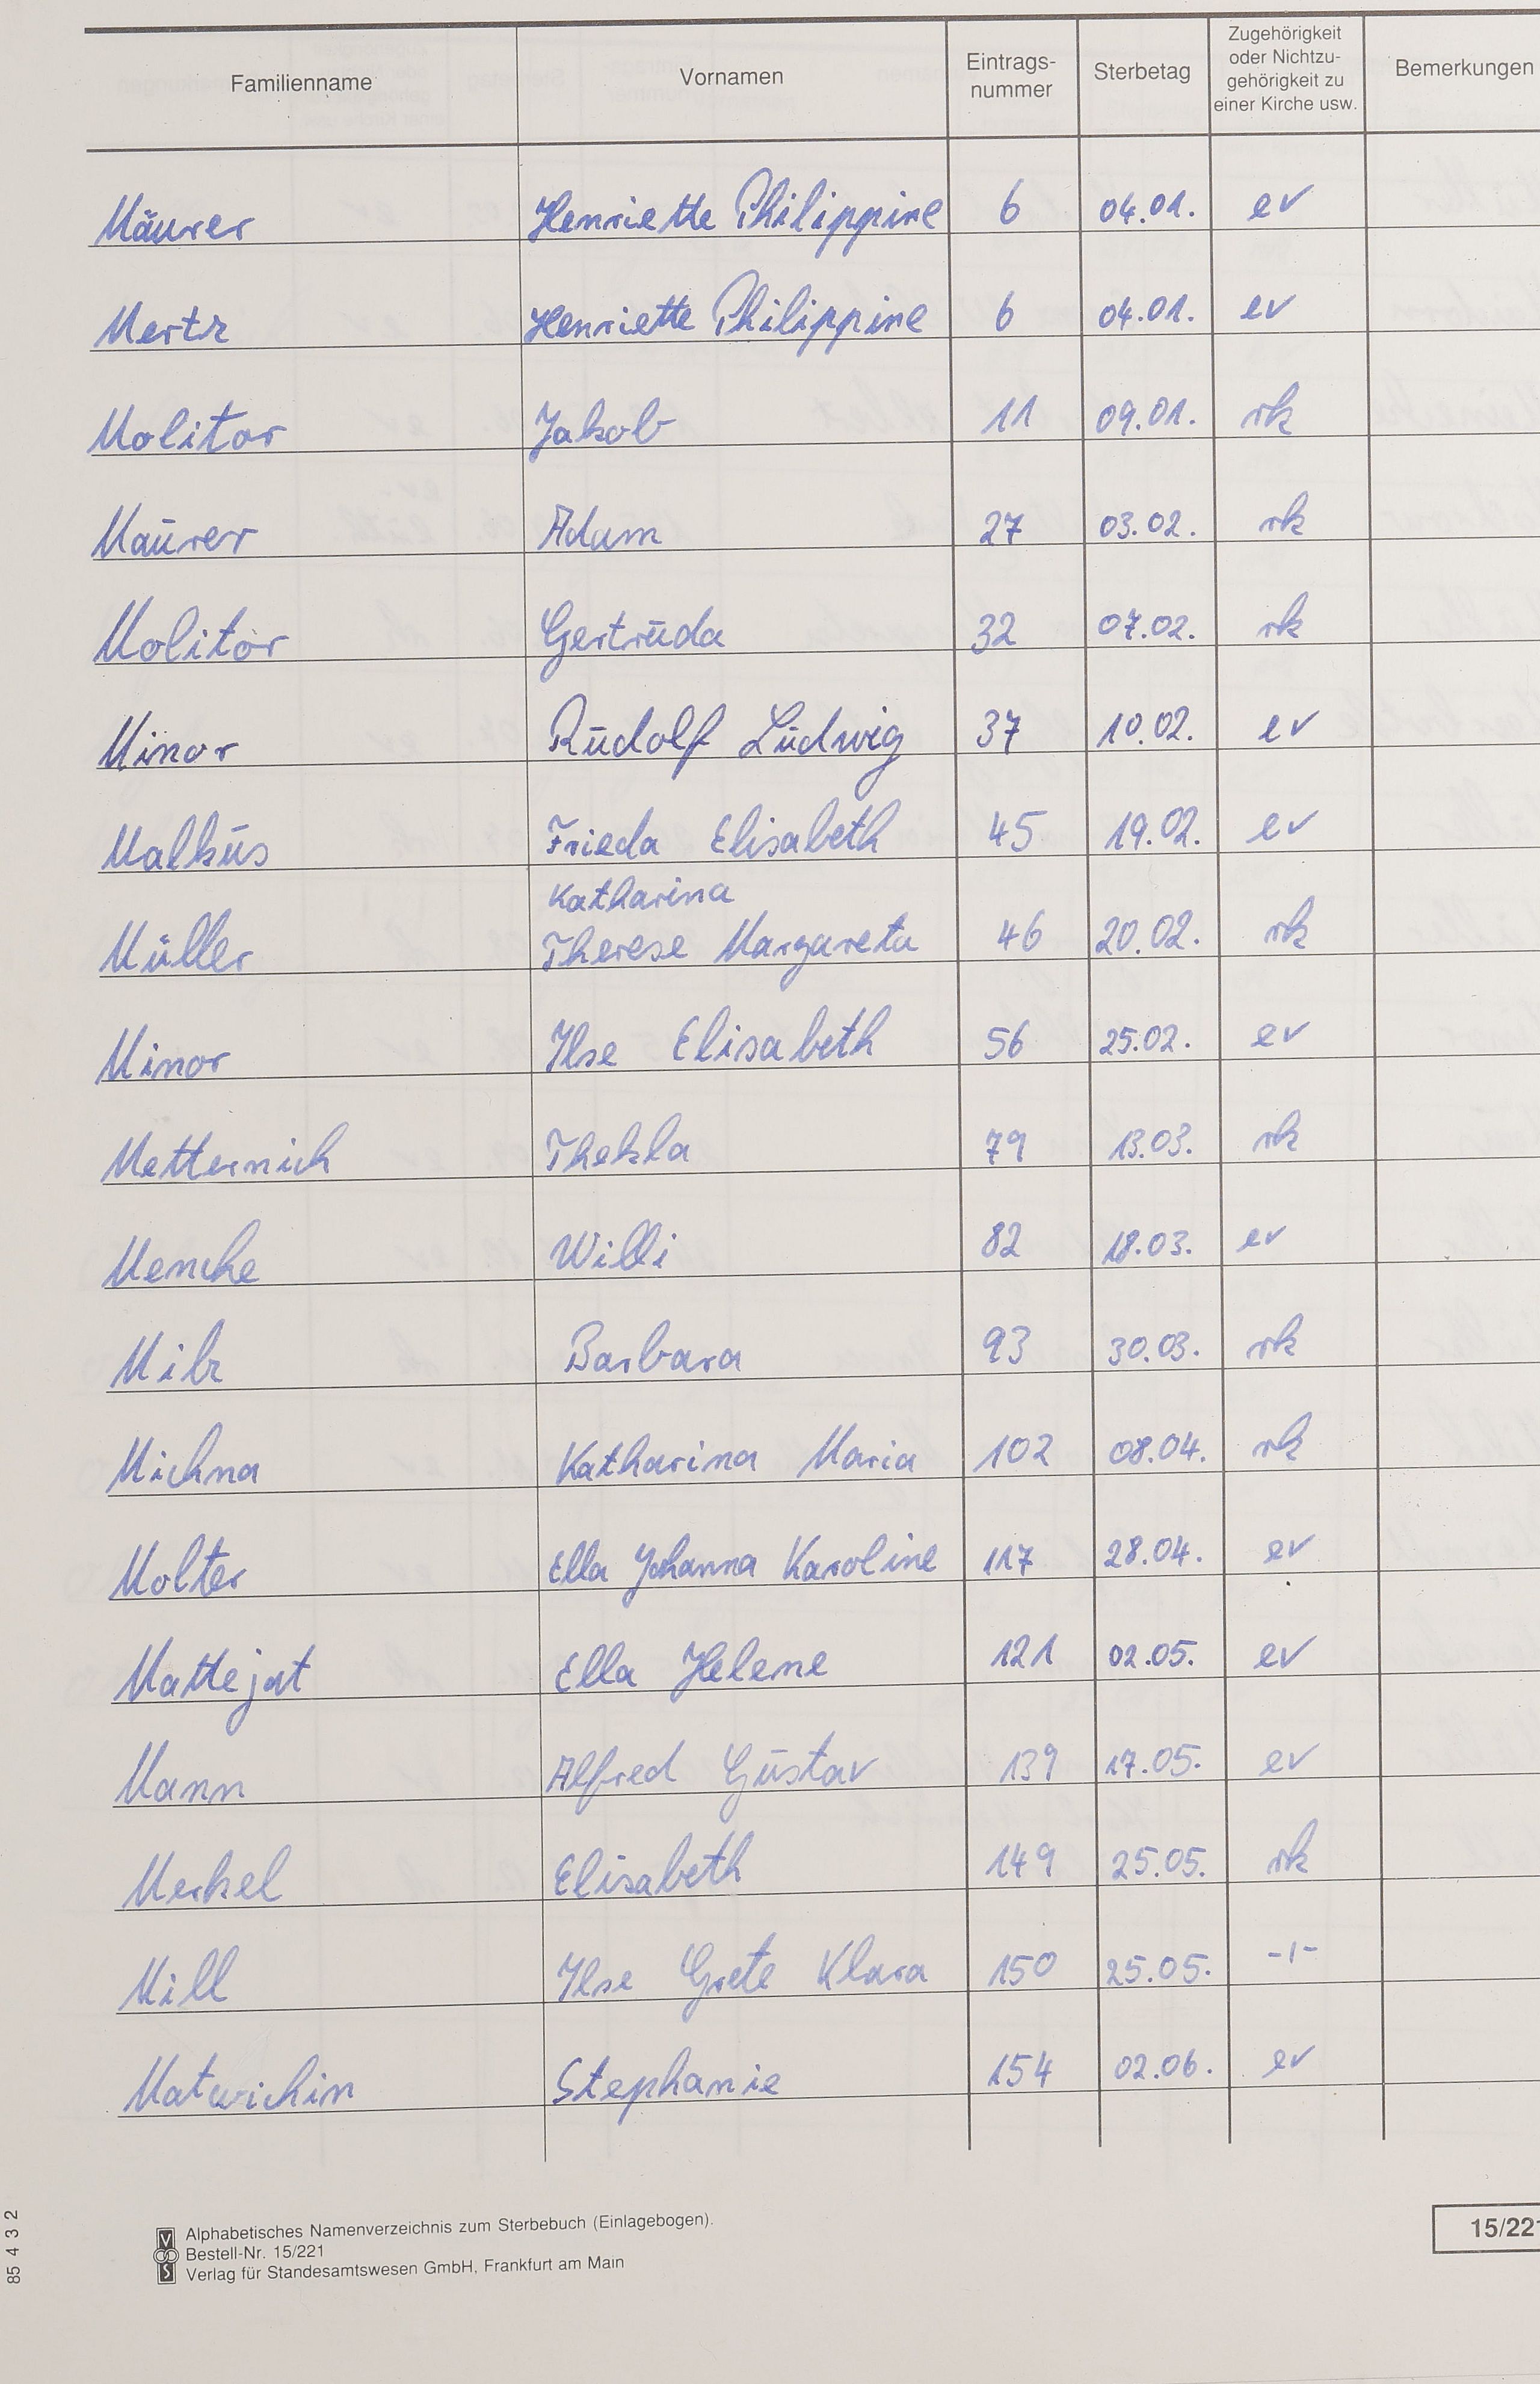 Familienname Vornamen Eintrags-nummer Sterbetag Zugehörigkeit oder Nichtzu-gehörigkeit zu einer Kirche usw. Bemerkungen
Mäurer Henriette Philippine 6 04.01. ev
Mertz Henriette Philippine 6 04.01. ev
Molitor Jakob 11 09.01. rk
Maurer Adam 27 03.02. rk
Molitor Gertruda 32 07.02. rk
Minor Rudolf Ludwig 37 10.02. ev
Malkus Frieda Elisabeth 45 19.02. ev
Katharina
Müller Therese Margareta 46 20.02. rk
Minor Ilse Elisabeth 56 25.02. ev
Metternich Thekla 79 13.03. rk
Menche Willi 82 18.03. ev
Milz Barbara 93 30.03. rk
Michna Katharina Maria 102 08.04. rk
Molter Ella Johanna Karoline 117 28.04. ev
Mattejat Ella Helene 121 02.05. ev
Mann Alfred Gustav 139 17.05. ev
Merkel Elisabeth 149 25.05. rk
Mill Ilse Grete Klara 150 25.05. -1-
Matwichin Stephanie 154 02.06. ev
85 4 3 2
Alphabetisches Namenverzeichnis zum Sterbebuch (Einlagebogen).
Bestell-Nr. 15/221
Verlag für Standesamtswesen GmbH, Frankfurt am Main
15/221